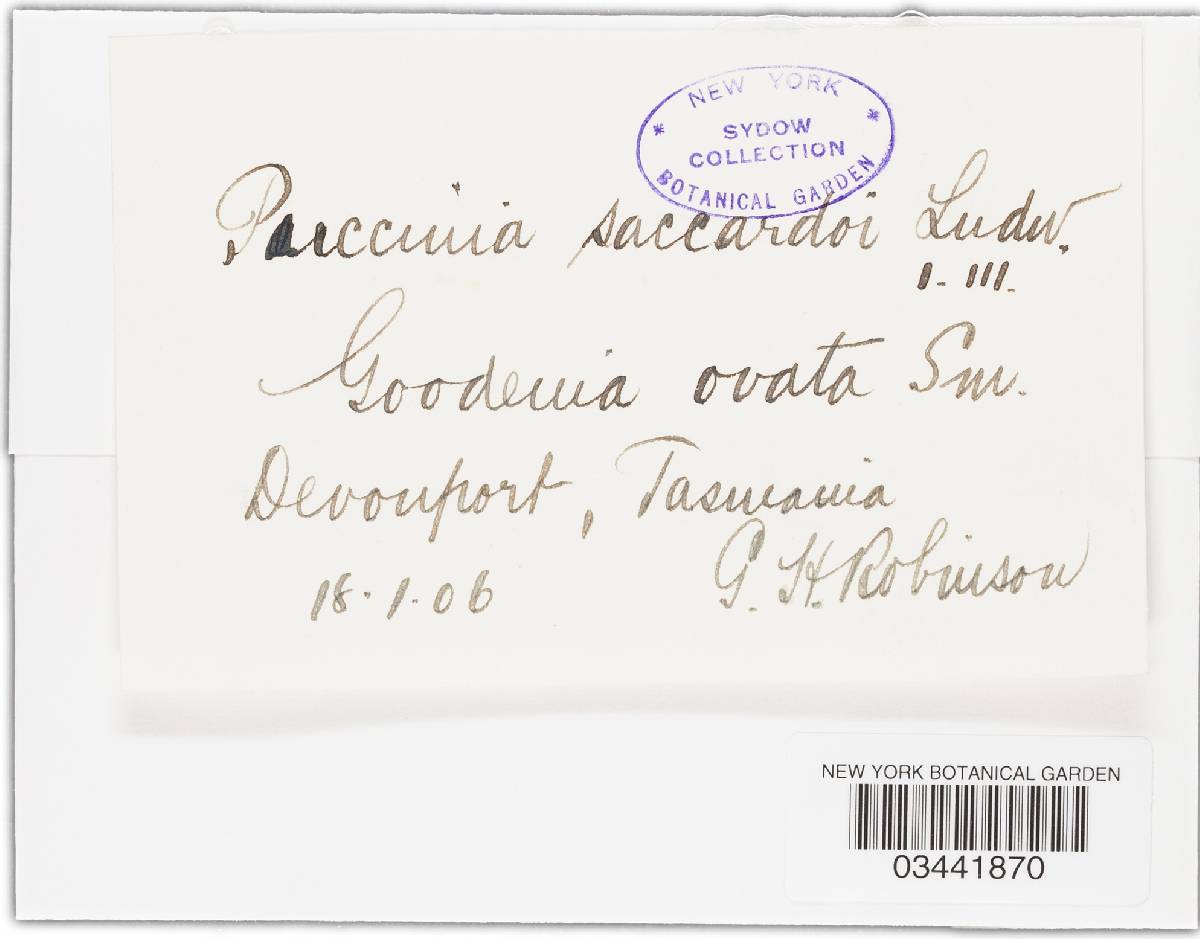 NEW YORK
SYDOW
COLLECTION
BOTANICAL GARDEN
Puccinia saccardoi Ludw.
I. III.
Goodenia ovata Sm.
Devonport, Tasmania
G. H. Robinson
18.1.06
NEW YORK BOTANICAL GARDEN
03441870